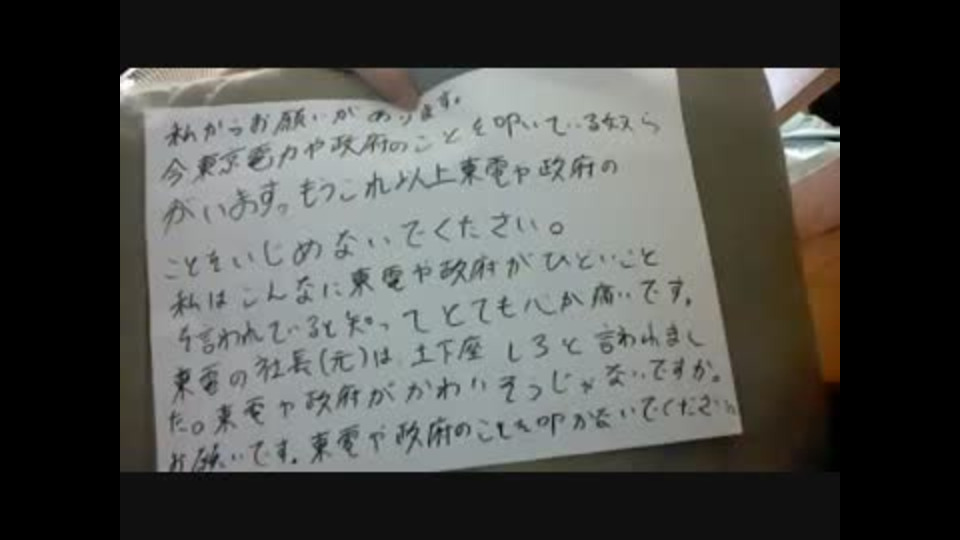 私からお願いがあります。
今東京電力や政府のことを叩いている奴ら
がいます。もうこれ以上東電や政府の
ことをいじめないでください。
私はこんなに東電や政府がひどいこと
を言われていると知ってとても心が痛いです。
東電の社長(元)は土下座しろと言われまし
た。東電や政府がかわいそうじゃないですか。
お願いです。東電や政府のことを叩かないでください